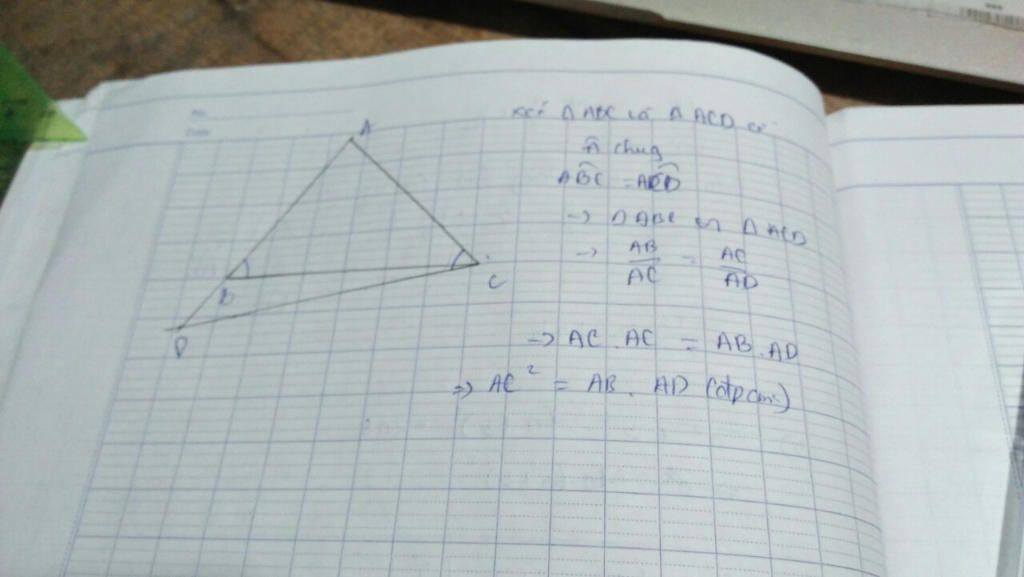 A
B
C
D
xét Δ ABC và Δ ACD có
Â chug
ABC = ACD
→ Δ ABC ∽ Δ ACD
→ AB/AC = AC/AD
→ AC . AC = AB . AD
⇒ AC² = AB . AD (đpcm)